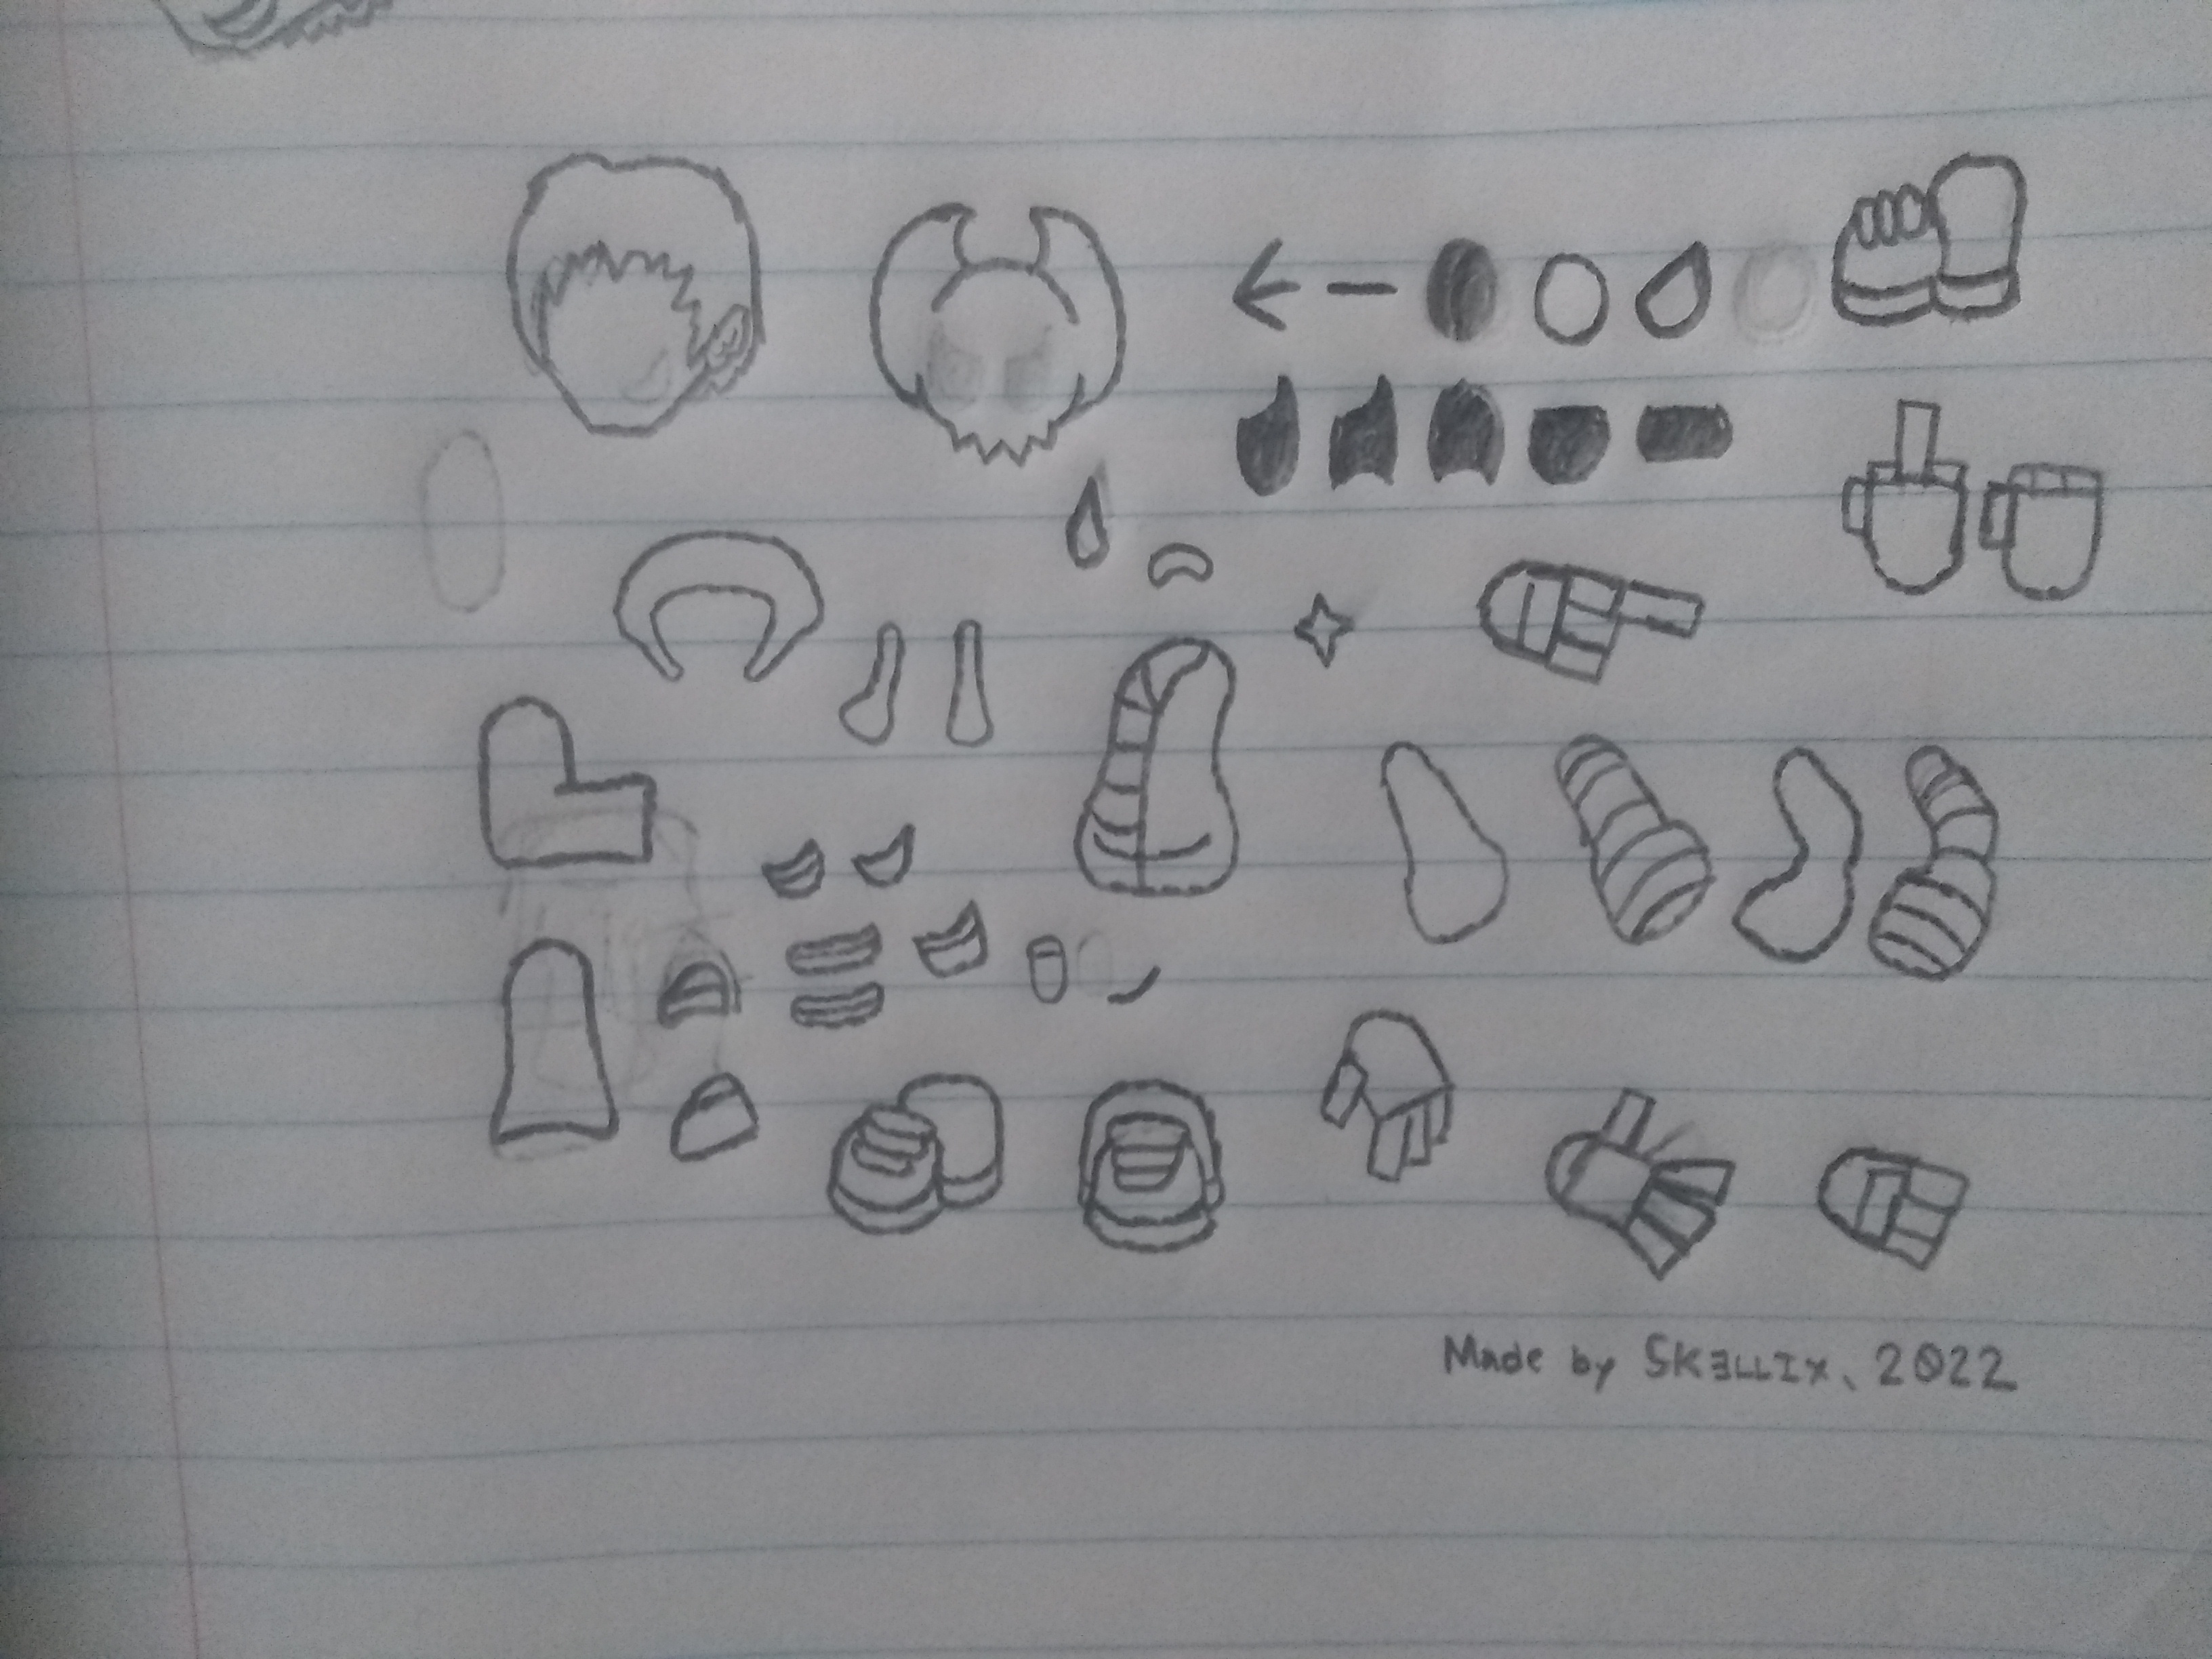 Made by SKƎLLIX, 2022